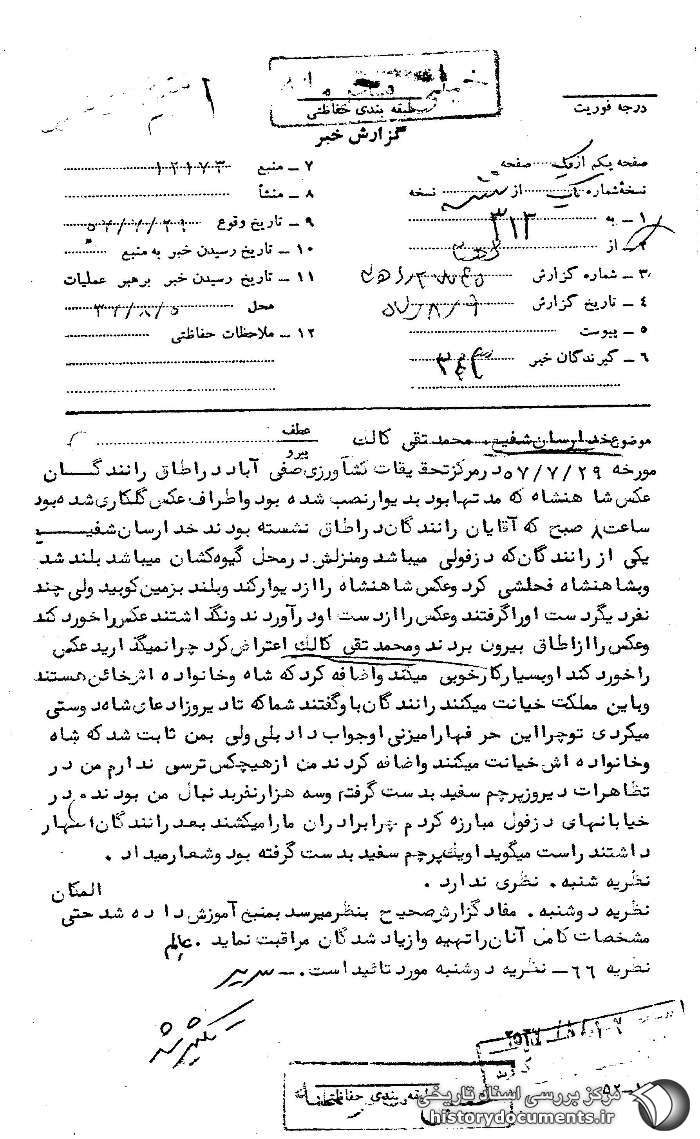 خیلی محرمانه
طبقه بندی حفاظتی
گزارش خبر
درجه فوریت
صفحه یکم از یک صفحه
نسخهٔ شماره یک از سه نسخه
۱ – به ۳۱۲
۲ – از
۳ – شماره گزارش
۴ – تاریخ گزارش ۵۷/۸/۶
۵ – پیوست
۶ – گیرندگان خبر
۷ – منبع ۱۲۱۷۳
۸ – منشأ
۹ – تاریخ وقوع
۱۰ – تاریخ رسیدن خبر به منبع
۱۱ – تاریخ رسیدن خبر برهبر عملیات
محل ۳۷/۸/۵
۱۲ – ملاحظات حفاظتی
موضوع خدارسان شفیع. محمد تقی کالت
عطف
پیرو
مورخه ۵۷/۷/۲۹ درمرکز تحقیقات کشاورزی صفی آباد در اطاق رانندگان
عکس شاهنشاه که مدتها بود بدیوار نصب شده بود و اطراف عکس گلکاری شده بود
ساعت ۸ صبح که آقایان رانندگان در اطاق نشسته بودند خدارسان شفیع
یکی از رانندگان که دزفولی میباشد ومنزلش درمحل گیوه کشان میباشد بلند شد
وبشاهنشاه فحاشی کرد وعکس شاهنشاه را از دیوار کند وبلند بزمین کوبید ولی چند
نفر دیگر دست او را گرفتند وعکس را از دست او در آوردند ونگذاشتند عکس را خورد کند
وعکس را از اطاق بیرون بردند ومحمد تقی کالت اعتراض کرد چرا نمیگذارید عکس
را خورد کند او بسیار کار خوبی میکند واضافه کرد که شاه وخانواده اش خائن هستند
وباین مملکت خیانت میکنند رانندگان باو گفتند شما که تا دیروز ادعای شاه دوستی
میکردی تو چرا این حرفها را میزنی او جواب داد بلی ولی بمن ثابت شد که شاه
وخانواده اش خیانت میکنند واضافه کردند من از هیچکس ترسی ندارم من در
تظاهرات دیروز پرچم سفید بدست گرفتم وسه هزار نفر بدنبال من بودند. در
خیابانهای دزفول مبارزه کردم چرا برادران ما را میکشند بعد رانندگان اظهار
داشتند راست میگوید او یک پرچم سفید بدست گرفته بود وشعار میداد .
نظریه شنبه. نظری ندارد .
نظریه دوشنبه. مفاد گزارش صحیح بنظر میرسد بمنبع آموزش داده شد حتی المکان
مشخصات کامل آنان را تهیه و از یاد شدگان مراقبت نماید .
نظریه ۶۶ – نظریه دوشنبه مورد تائید است .
طبقه بندی حفاظتی
مرکز بررسی اسناد تاریخی
historydocuments.ir